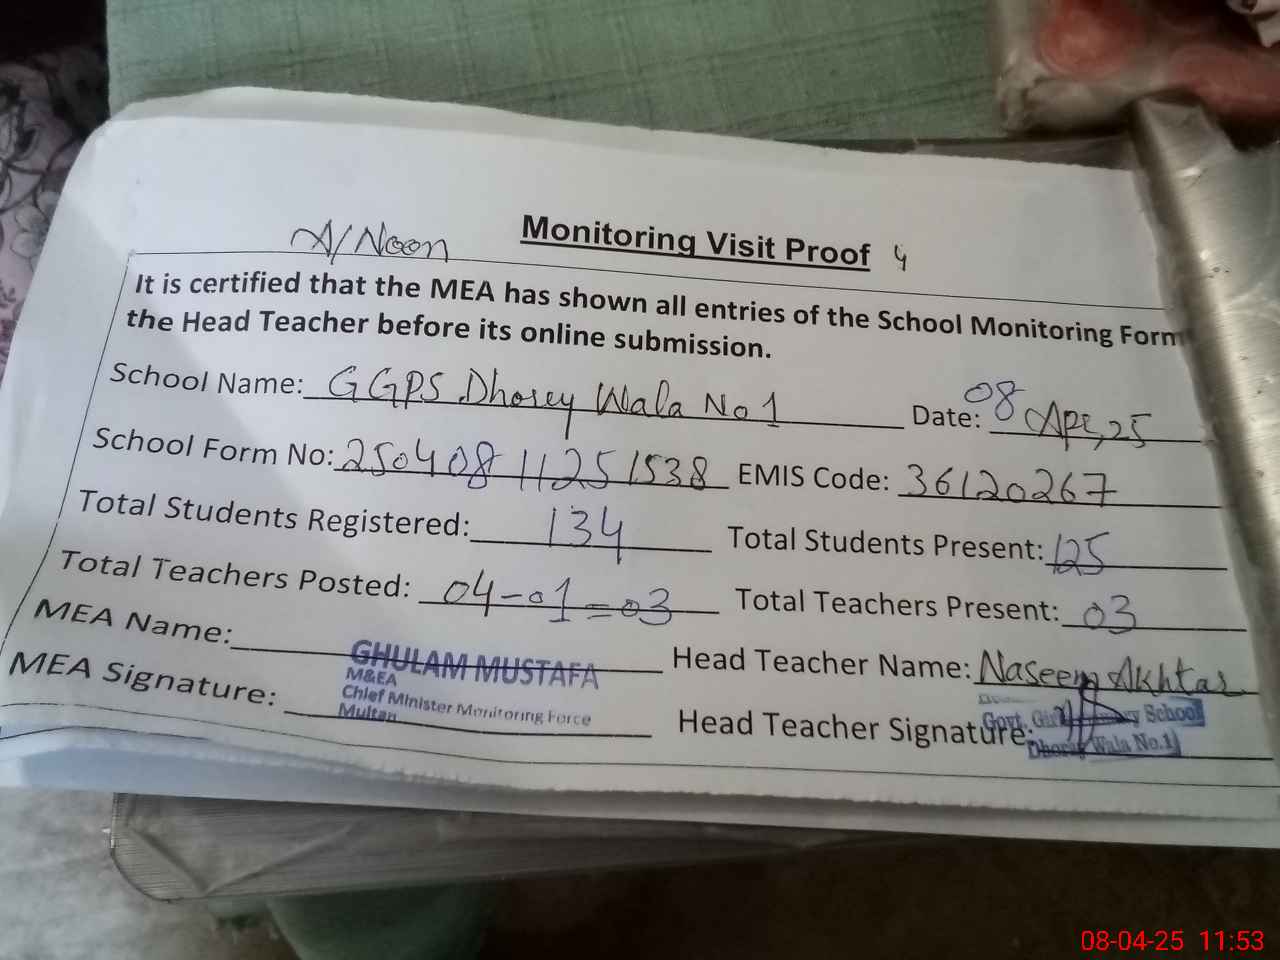 A/Noon
Monitoring Visit Proof 4
It is certified that the MEA has shown all entries of the School Monitoring Form
the Head Teacher before its online submission.
School Name: GGPS Dhorey Wala No 1 Date: 08 Apr, 25
School Form No: 250408 11251538 EMIS Code: 36120267
Total Students Registered: 134 Total Students Present: 125
Total Teachers Posted: 04-01=03 Total Teachers Present: 03
MEA Name: Head Teacher Name: Naseem Akhtar
GHULAM MUSTAFA
M&EA
Chief Minister Monitoring Force
Multan
MEA Signature: Head Teacher Signature:
Govt. School
Wala No.1
08-04-25 11:53